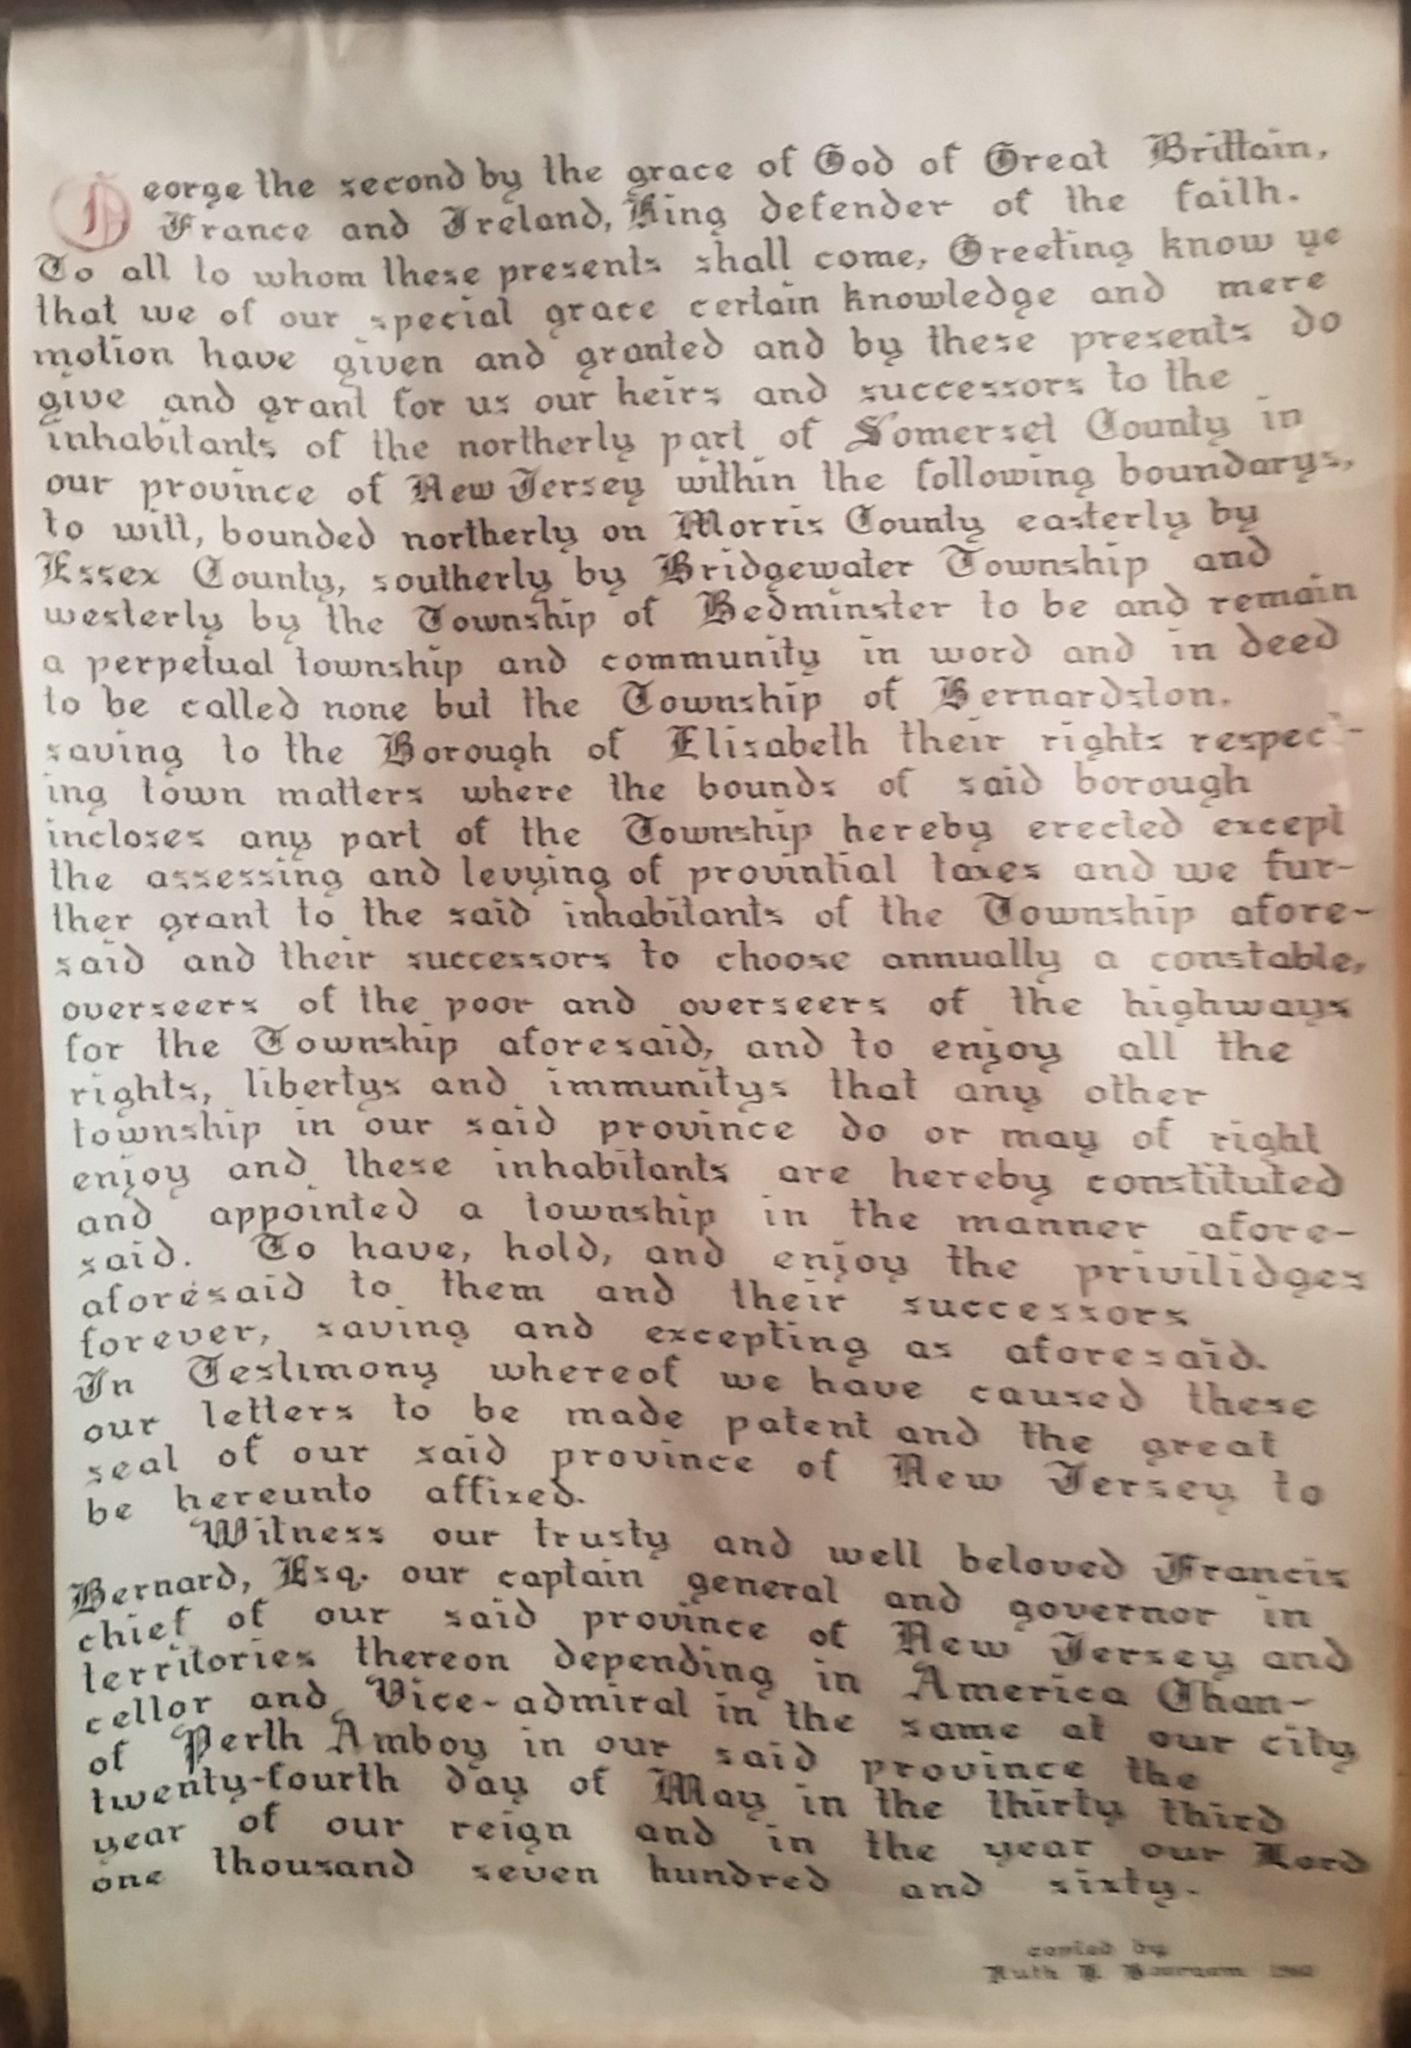 George the second by the grace of God of Great Brittain,
France and Ireland, King defender of the faith.
To all to whom these presents shall come, Greeting know ye
that we of our special grace certain knowledge and mere
motion have given and granted and by these presents do
give and grant for us our heirs and successors to the
inhabitants of the northerly part of Somerset County in
our province of New Jersey within the following boundarys,
to witt, bounded northerly on Morris County easterly by
Essex County, southerly by Bridgewater Township and
westerly by the Township of Bedminster to be and remain
a perpetual township and community in word and in deed
to be called none but the Township of Bernardston.
saving to the Borough of Elisabeth their rights respec-
ing town matters where the bounds of said borough
incloses any part of the Township hereby erected except
the assessing and levying of provintial taxes and we fur-
ther grant to the said inhabitants of the Township afore-
said and their successors to choose annually a constable,
overseers of the poor and overseers of the highways
for the Township aforesaid, and to enjoy all the
rights, libertys and immunitys that any other
township in our said province do or may of right
enjoy and these inhabitants are hereby constituted
and appointed a township in the manner afore-
said. To have, hold, and enjoy the privilidges
aforesaid to them and their successors
forever, saving and excepting as aforesaid.
In Testimony whereof we have caused these
our letters to be made patent and the great
seal of our said province of New Jersey to
be hereunto affixed.
Witness our trusty and well beloved Francis
Bernard, Esq. our captain general and governor in
chief of our said province of New Jersey and
territories thereon depending in America Chan-
cellor and Vice-admiral in the same at our city
of Perth Amboy in our said province the
twenty-fourth day of May in the thirty third
year of our reign and in the year our Lord
one thousand seven hundred and sixty.
copied by
Ruth 1960